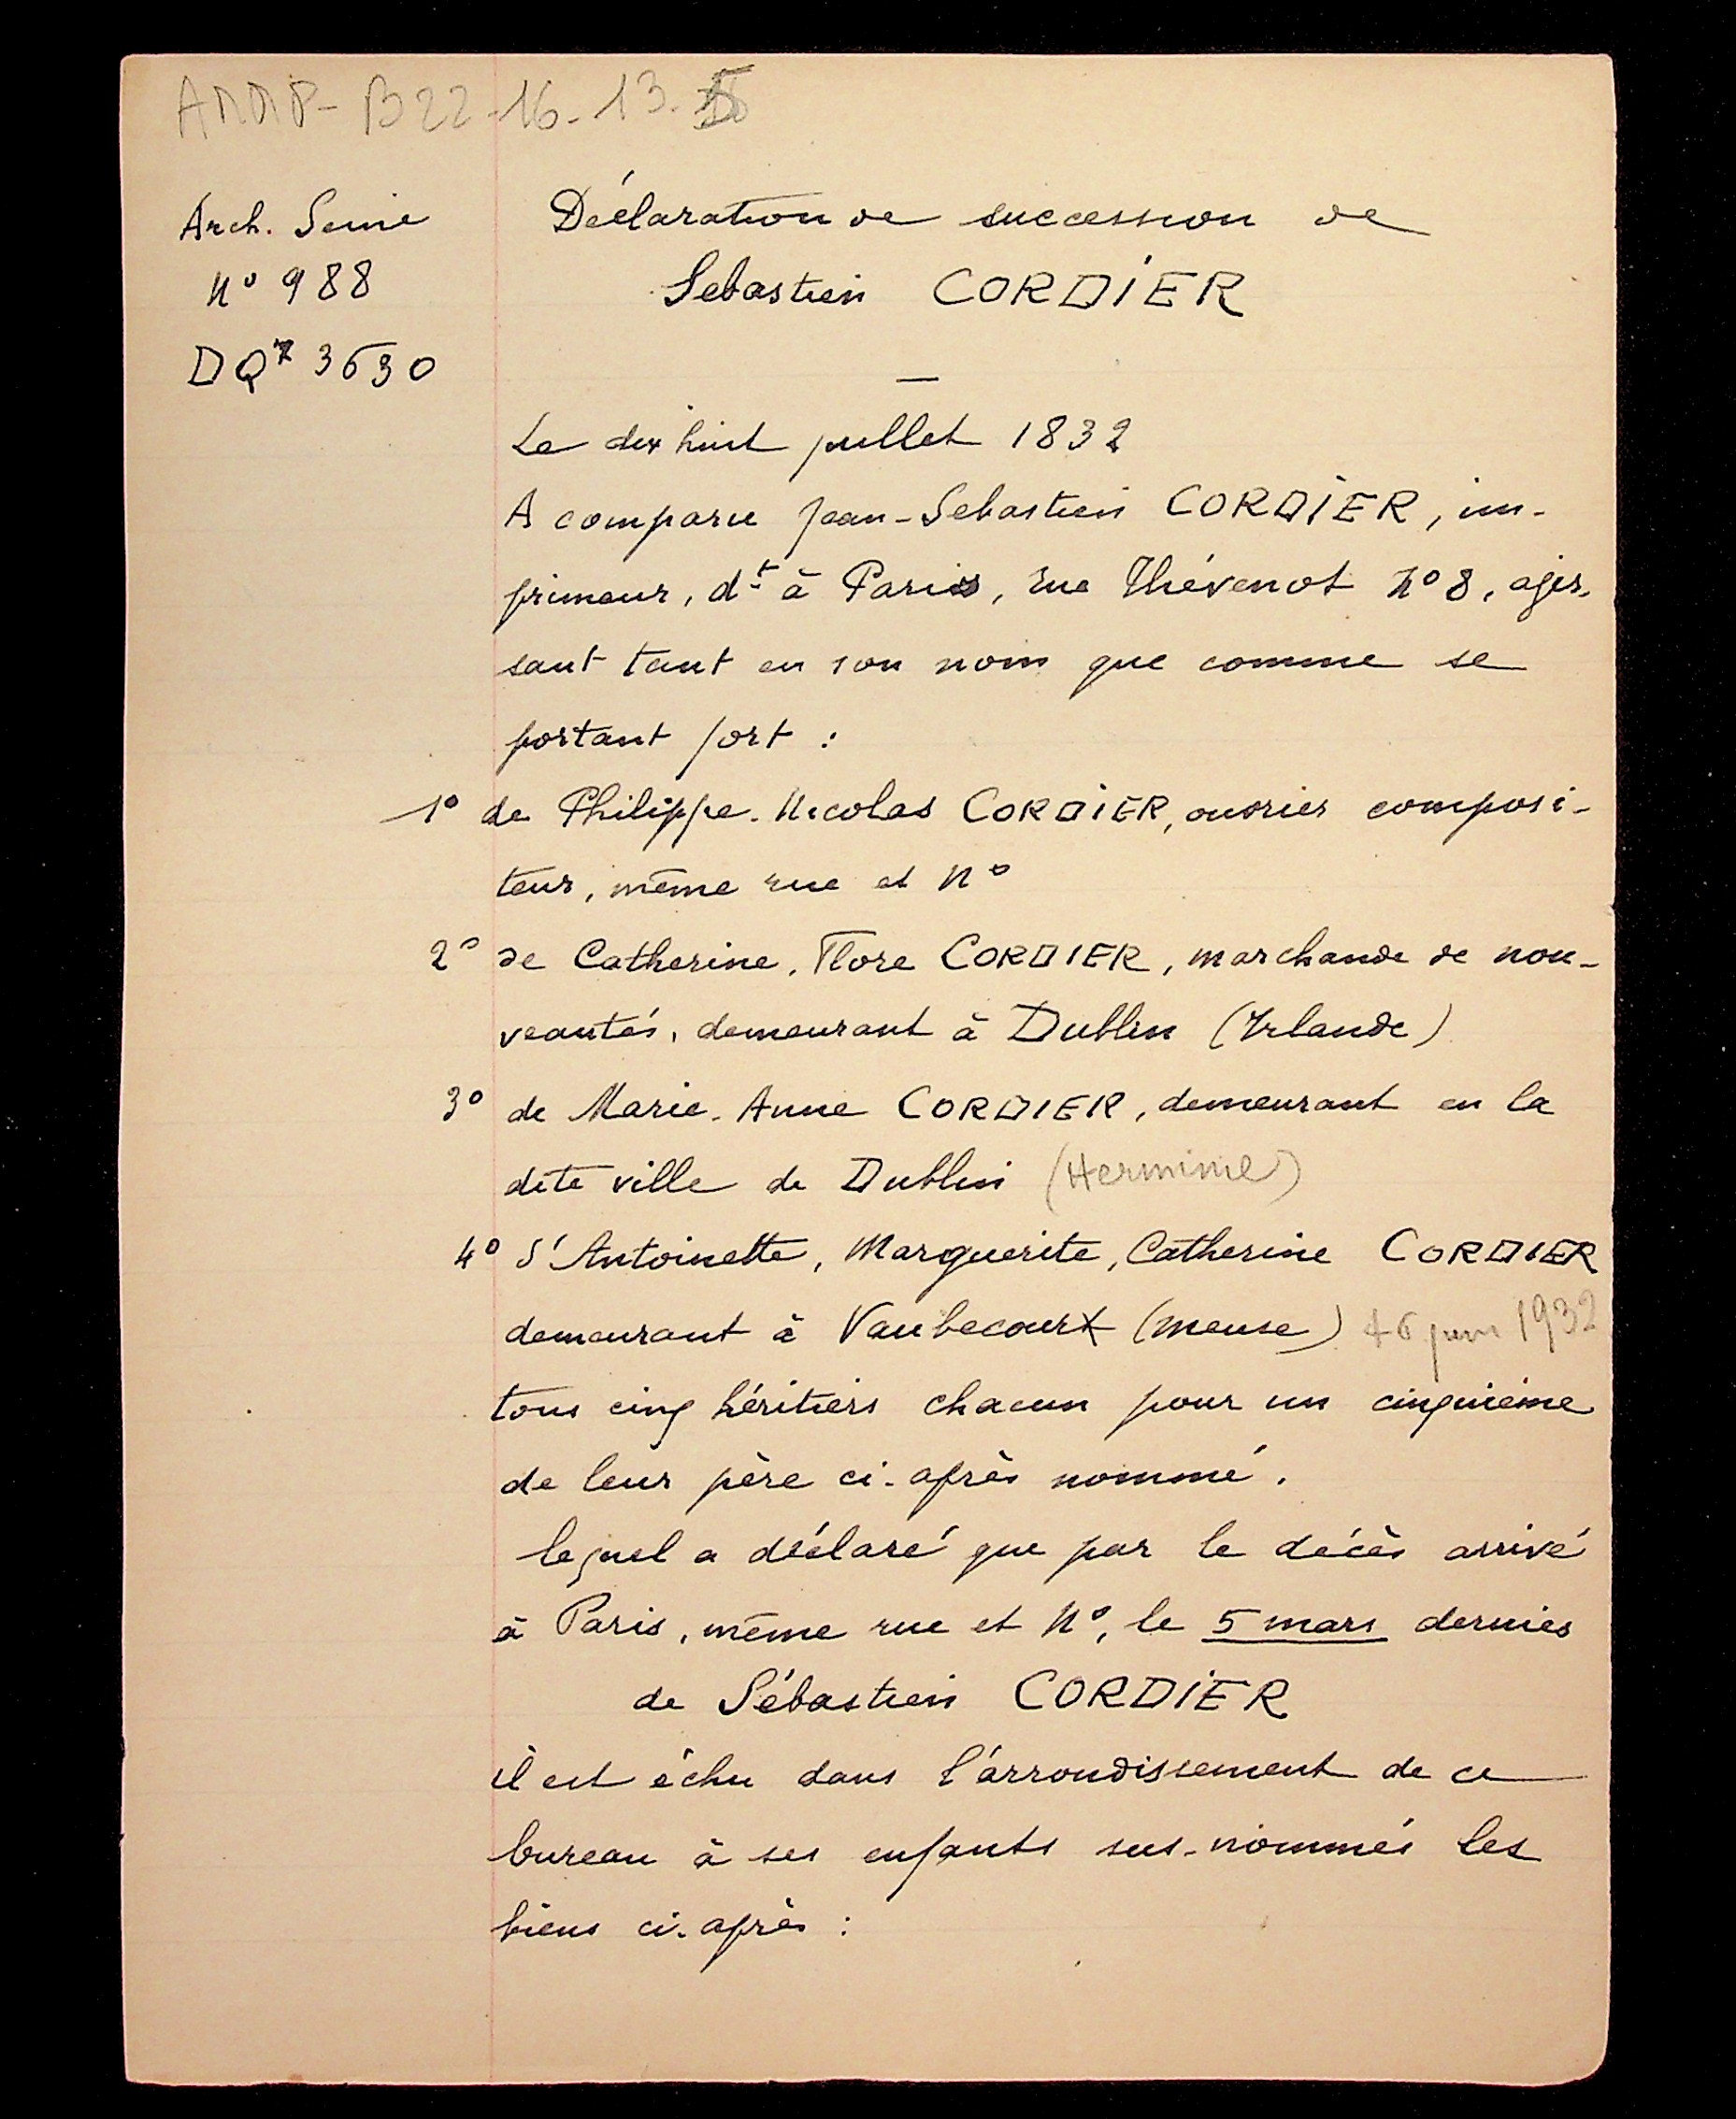 AMMP - B22-16-13.
Arch. Seine
N° 988
DQ⁷ 3630
Déclaration de succession de
Sebastien CORDIER
—
Le dix huit juillet 1832
A comparu Jean-Sebastien CORDIER, im-
primeur, dt à Paris, rue Thévenot N° 8, agis-
sant tant en son nom que comme se
portant fort :
1° de Philippe-Nicolas CORDIER, ouvrier composi-
teur, même rue et N°
2° de Catherine, Flore CORDIER, marchande de nou-
veautés, demeurant à Dublin (Irlande)
3° de Marie-Anne CORDIER, demeurant en la
dite ville de Dublin (Hermine)
4° d'Antoinette, Marguerite, Catherine CORDIER
demeurant à Vaubecourt (Meuse) + 6 juin 1932
tous cinq héritiers chacun pour un cinquième
de leur père ci-après nommé.
lequel a déclaré que par le décès arrivé
à Paris, même rue et N°, le 5 mars dernier
de Sébastien CORDIER
il est échu dans l'arrondissement de ce
bureau à ses enfants sus-nommés les
biens ci-après :